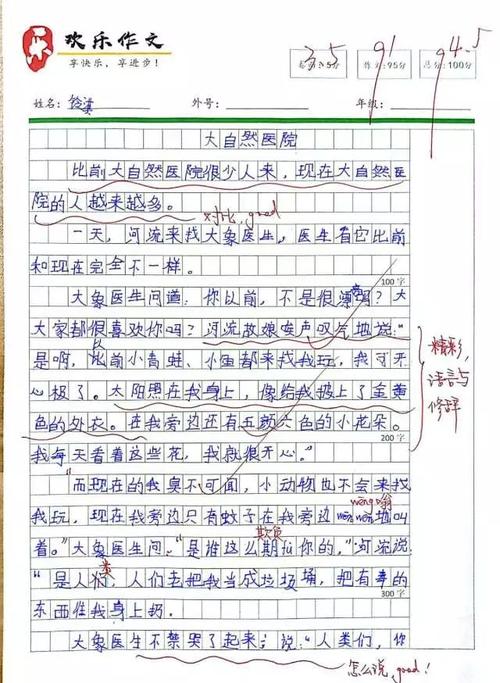 欢乐作文
享快乐，享进步！
3.5 91 94.5
5分 作文:95分 总分:100分
姓名: 外号: 年级:
大自然医院
比前大自然医院很少人来，现在大自然医
院的人越来越多。
对比，good
一天，河流来找大象医生，医生看它比前
和现在完全不一样。
100字
大象医生问道：你以前，不是很漂亮吗？大
大家都很喜欢你吗？河流故娘唉声叹气地说：“
是啊，比前小青蛙、小鱼都来找我玩，我可开
以
心极了。太阳照在我身上，像给我披上了金黄
色的外衣。在我旁边还有五颜六色的小花朵。
200字
我每天看着这些花，我就很开心。”
精彩，
语言与
修辞
“而现在的我臭不可闻，小动物也不会来找
wēng嗡
我玩，现在我旁边只有蚊子在我旁边wēng wēng地叫
欺负
着。”大象医生问：“是谁这么期负你的，”河流说：
“是人们，人们去把我当成垃圾桶，把有毒的
类
300字
东西往我身上扔。
大象医生不禁哭了起来；说：“人类们，你
怎么说，good！